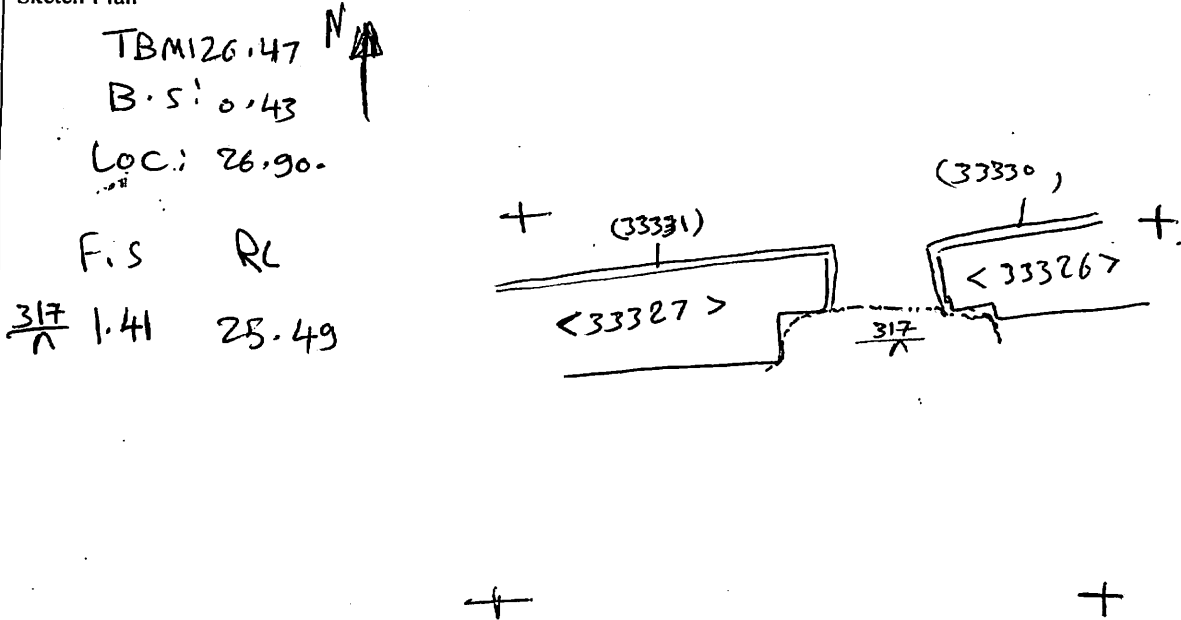 Sketch Plan
TBM126.47 N
B.S: 0.43
Loc.: 26.90.
F.S RL
317 1.41 25.49
(33331)
<33327>
(33330)
<33326>
317